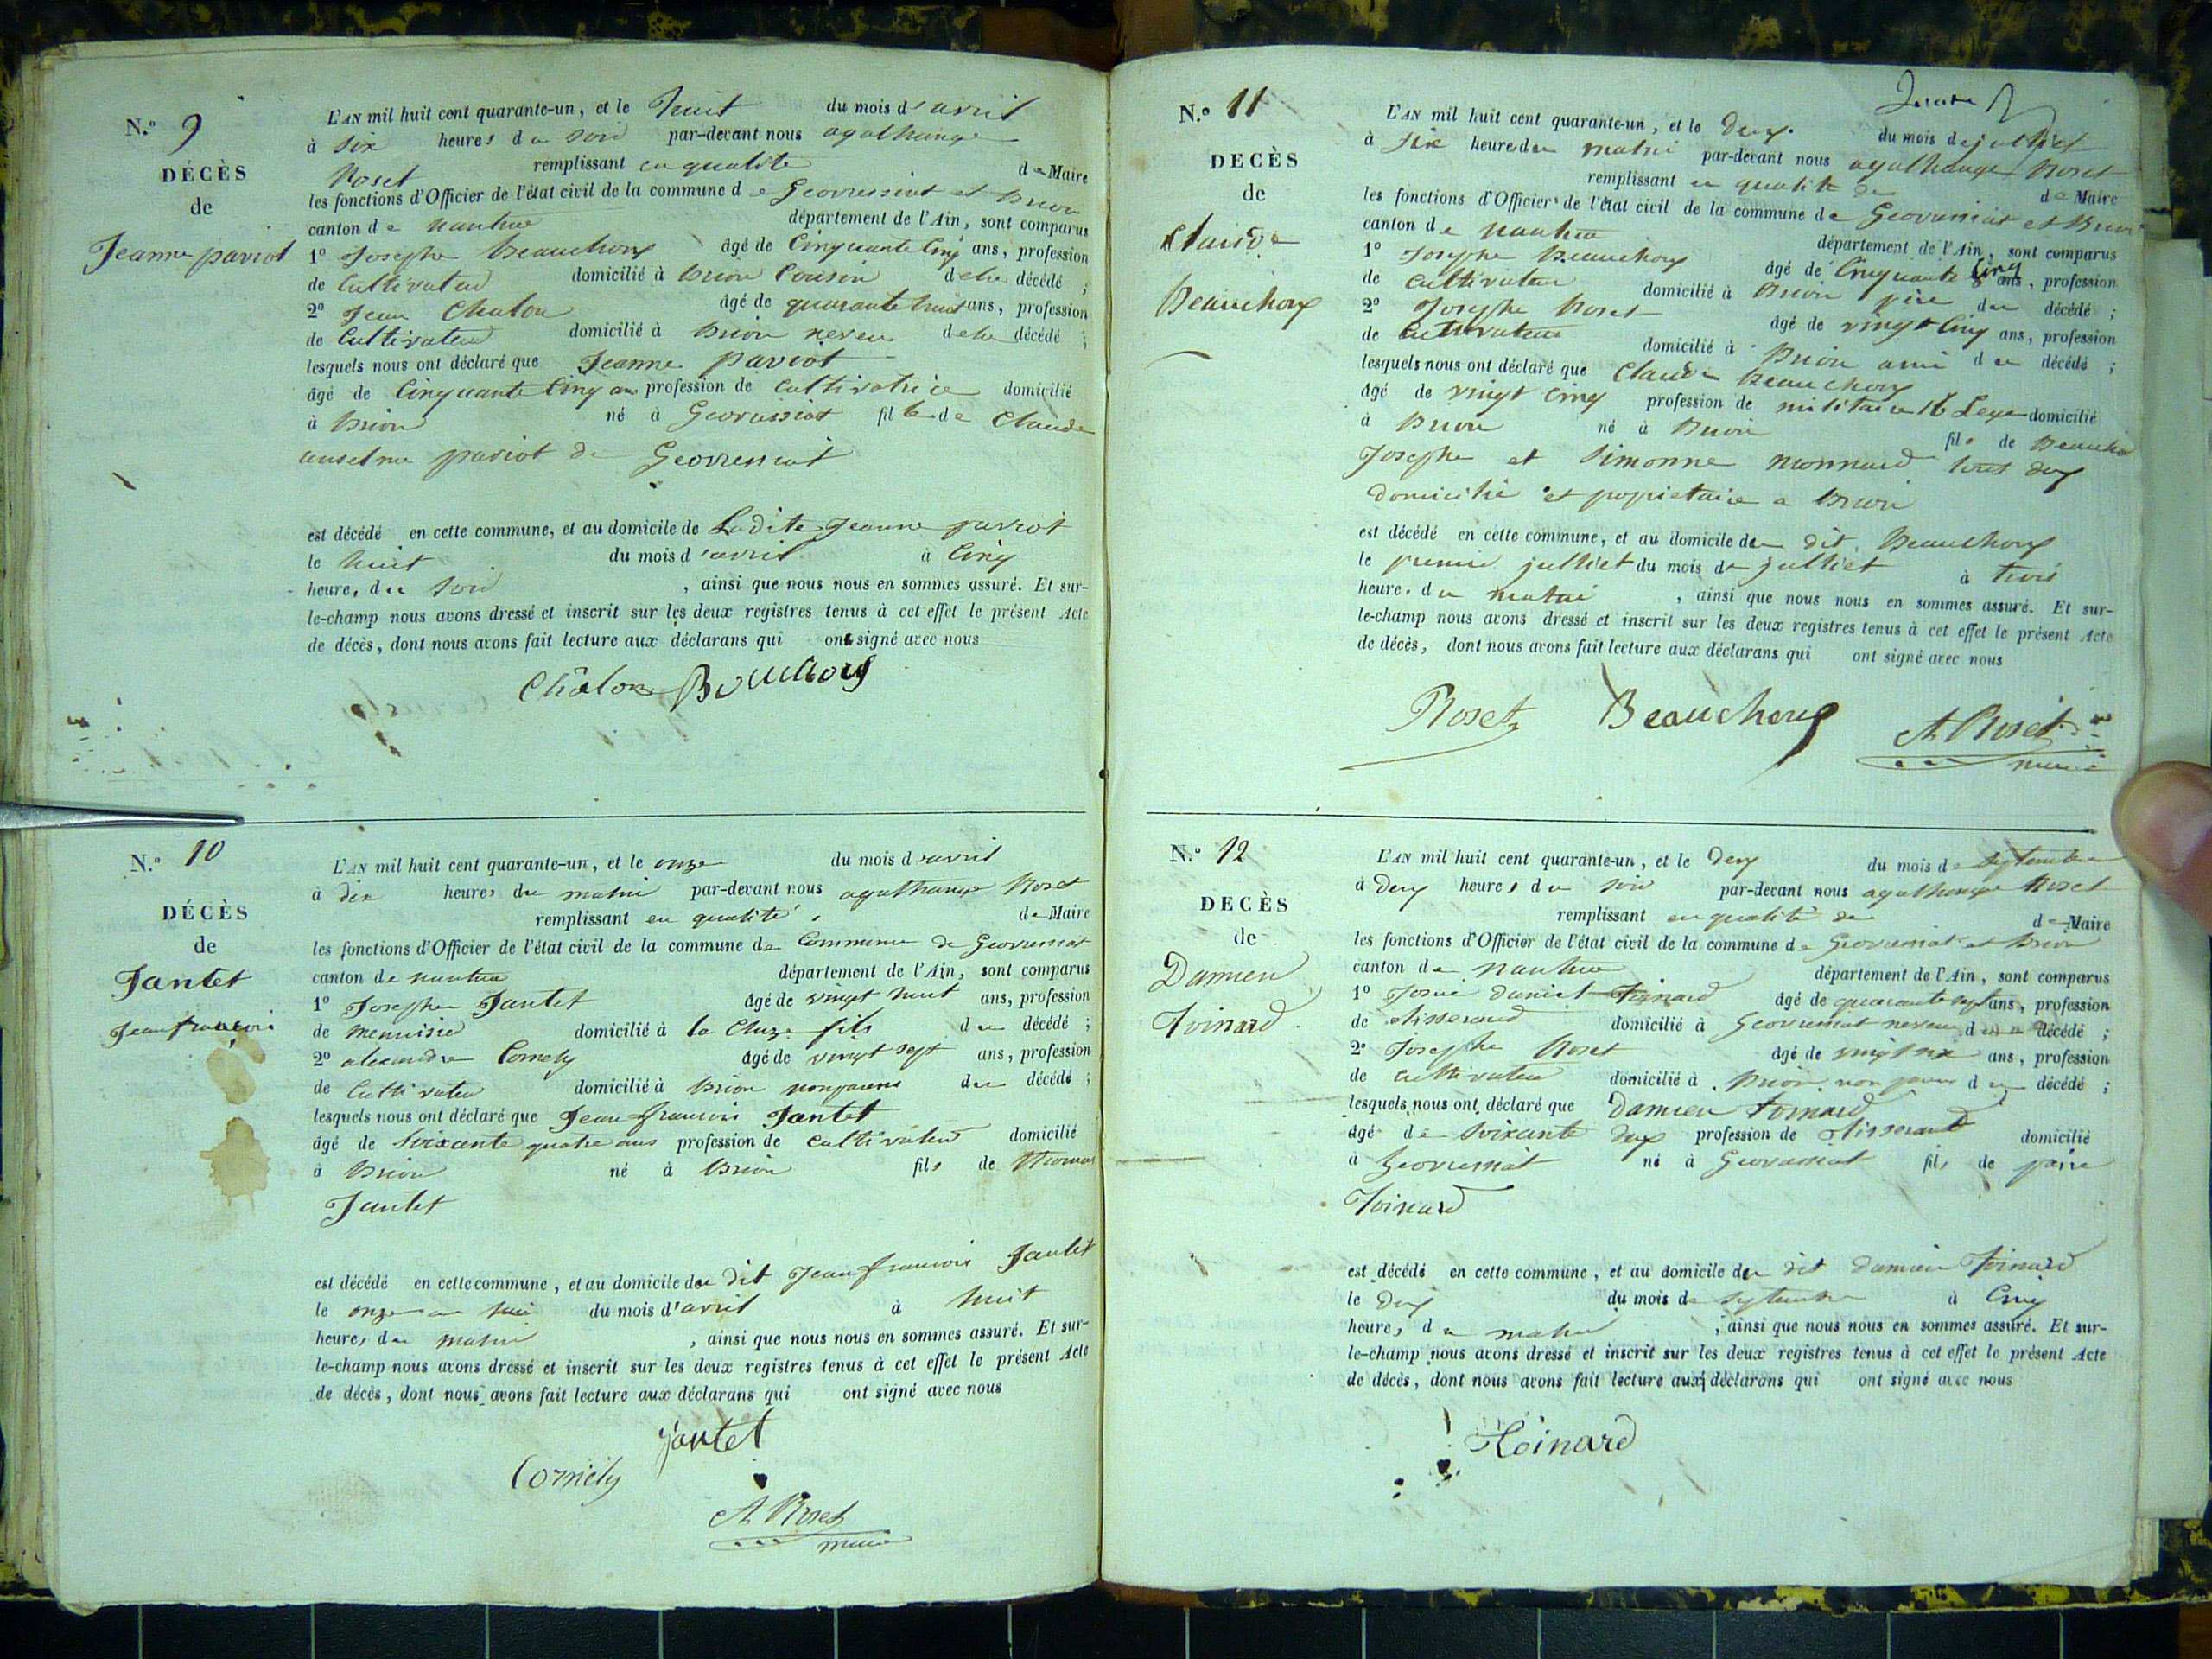 N.° 9
DÉCÈS
de
Jeanne pariot
L'AN mil huit cent quarante-un, et le huit du mois d'avril
à six heures du soir par-devant nous agathange
Roset remplissant en qualite de Maire
les fonctions d'Officier de l'état civil de la commune de Geovressiat et Brion
canton de nantua département de l'Ain, sont comparus
1° Josephe Beauchoux âgé de Cinquante Cinq ans, profession
de Cultivateur domicilié à Brion Cousin de la décédé ;
2° Jean Chalon âgé de quarante huit ans, profession
de Cultivateur domicilié à Brion neveu de la décédé ;
lesquels nous ont déclaré que Jeanne Pariot
âgé de Cinquante Cinq ans profession de Cultivatrice domicilié
à Brion né à Geovressiat fille de Claude
anselme pariot de Geovressiat
est décédé en cette commune, et au domicile de Ladite Jeanne pariot
le huit du mois d'avril à Cinq
heures du soir , ainsi que nous nous en sommes assuré. Et sur-
le-champ nous avons dressé et inscrit sur les deux registres tenus à cet effet le présent Acte
de décès, dont nous avons fait lecture aux déclarans qui ont signé avec nous
Châlon
N.° 10
DÉCÈS
de
Jantet
Jean françois
L'AN mil huit cent quarante-un, et le onze du mois d'avril
à dix heures du matin par-devant nous agathange Roset
remplissant en qualité de Maire
les fonctions d'Officier de l'état civil de la commune de Commune de Geovressiat
canton de nantua département de l'Ain, sont comparus
1° Josephe Jantet âgé de vingt huit ans, profession
de menuisier domicilié à la Cluze fils du décédé ;
2° alexandre Cornely âgé de vingt sept ans, profession
de Cultivateur domicilié à Brion non parens du décédé ;
lesquels nous ont déclaré que Jean françois Jantet
âgé de Soixante quatre ans profession de Cultivateur domicilié
à Brion né à Brion fils de Thomas
Jantet
est décédé en cette commune, et au domicile du dit Jean francois Jantet
le onze du mois d'avril à huit
heures du matin , ainsi que nous nous en sommes assuré. Et sur-
le-champ nous avons dressé et inscrit sur les deux registres tenus à cet effet le présent Acte
de décès, dont nous avons fait lecture aux déclarans qui ont signé avec nous
Jantet
Cornely
A Roset
maire
N.° 11
DECÈS
de
Claude
Beauchoux
L'AN mil huit cent quarante-un, et le deux du mois de julliet
à six heures du matin par-devant nous agathange Roset
remplissant en qualité de de Maire
les fonctions d'Officier de l'état civil de la commune de Geovressiat et Brion
canton de nantua département de l'Ain, sont comparus
1° Josephe Beauchoux âgé de Cinquante Cinq ans, profession
de Cultivateur domicilié à Brion père du décédé ;
2° Josephe Roset âgé de vingt Cinq ans, profession
de Cultivateur domicilié à Brion ami du décédé ;
lesquels nous ont déclaré que Claude Beauchoux
âgé de vingt cinq profession de militaire 16 Leger domicilié
à Brion né à Brion fils de Beauchoux
Josephe et Simonne monnard tous deux
domicilié et popietaire a Brion
est décédé en cette commune, et au domicile du dit Beauchoux
le premier julliet du mois de julliet à trois
heures du matin , ainsi que nous nous en sommes assuré. Et sur-
le-champ nous avons dressé et inscrit sur les deux registres tenus à cet effet le présent Acte
de décès, dont nous avons fait lecture aux déclarans qui ont signé avec nous
Roset Beauchoux A Roset
maire
N.° 12
DECÈS
de
Damien
Toinard
L'AN mil huit cent quarante-un, et le deux du mois de septembre
à deux heures du soir par-devant nous agathange Roset
remplissant en qualité de de Maire
les fonctions d'Officier de l'état civil de la commune de Geovressiat et Brion
canton de nantua département de l'Ain, sont comparus
1° Josué daniel Toinard âgé de quarante sept ans, profession
de tisserand domicilié à Geovressiat neveu du décédé ;
2° Josephe Roset âgé de vingt six ans, profession
de cultivateur domicilié à Brion non parens du décédé ;
lesquels nous ont déclaré que Damien Toinard
âgé de Soixante deux profession de Tisserand domicilié
à Geovressiat né à Geovressiat fils de
Toinard
est décédé en cette commune, et au domicile du dit damien Toinard
le deux du mois de septembre à Cinq
heures du matin , ainsi que nous nous en sommes assuré. Et sur-
le-champ nous avons dressé et inscrit sur les deux registres tenus à cet effet le présent Acte
de décès, dont nous avons fait lecture aux déclarans qui ont signé avec nous
Toinard